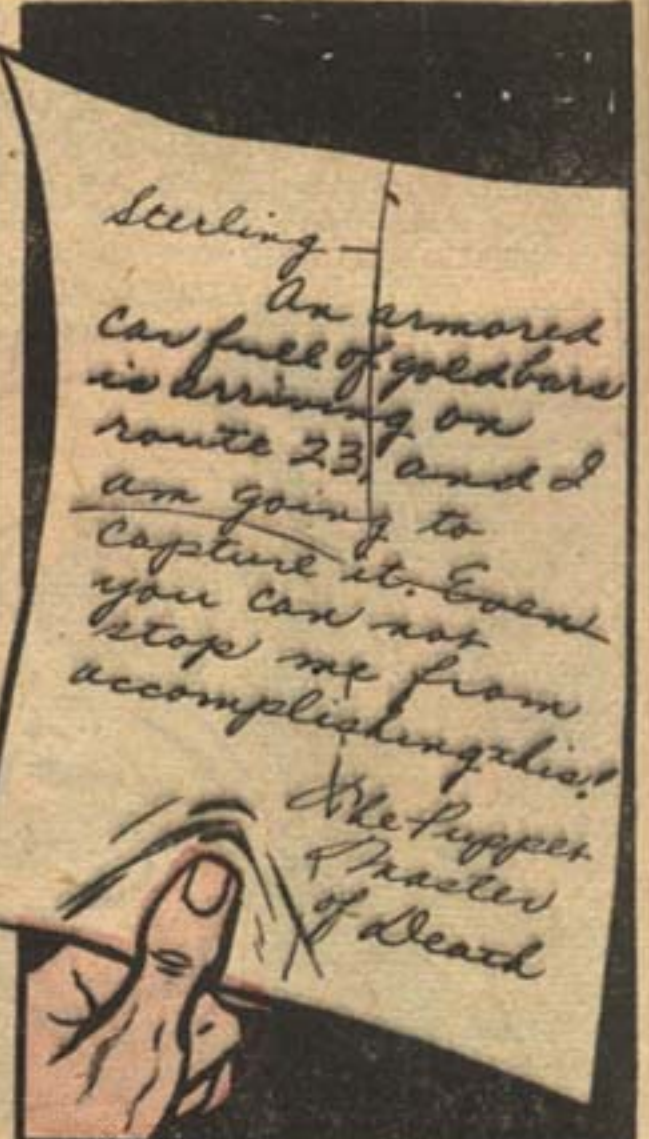 Sterling —
An armored
car full of gold bars
is arriving on
route 23, and I
am going to
capture it. Even
you can not
stop me from
accomplishing this!
The Puppet
Master
of Death